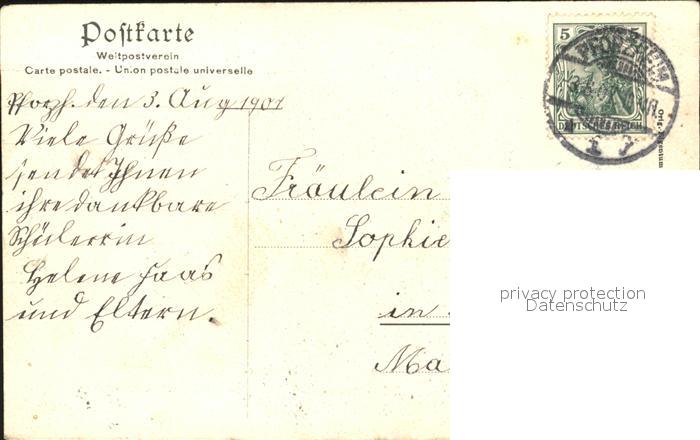 Postkarte
Weltpostverein
Carte postale. - Union postale universelle
Pforzh. den 3. Aug 1901
Viele Grüße
sendet Ihnen
ihre dankbare
Schülerin
Helene Haas
und Eltern.
Fräulein
Sophie
in
Ma
5 5
PFORZHEIM
DEUTSCHES REICH
privacy protection
Datenschutz